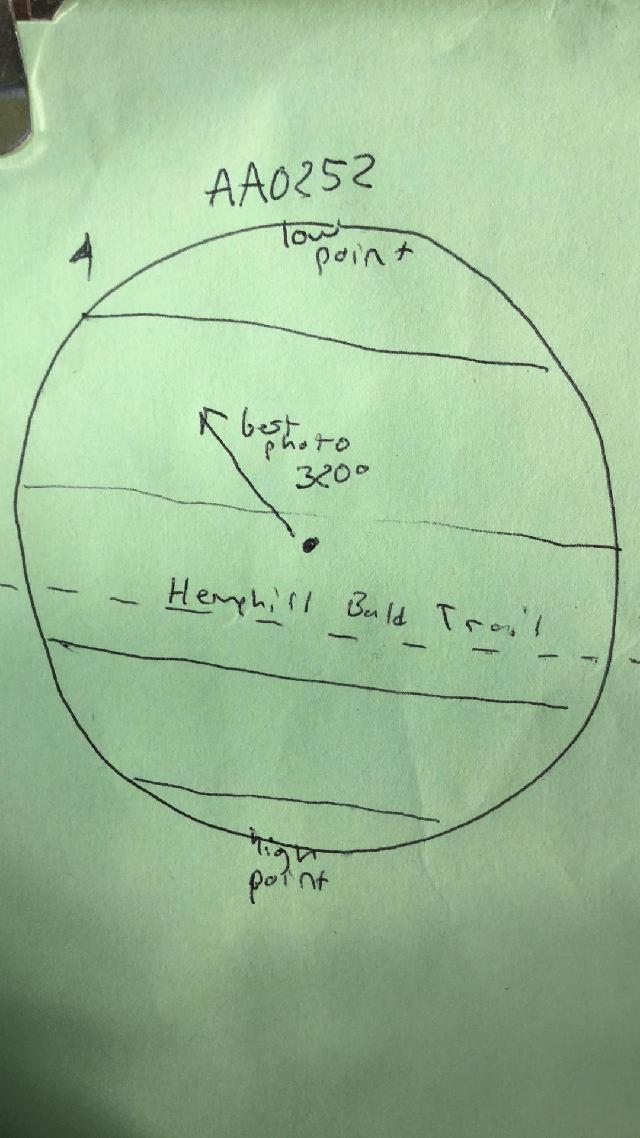 AA0252
low
point
best
photo
320°
Hemphill Bald Trail
high
point